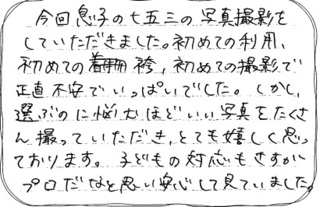 今回息子の七五三の写真撮影を
していただきました。初めての利用、
初めての着用袴、初めての撮影で
正直不安でいっぱいでした。しかし、
選ぶのに悩むほどいい写真をたくさ
ん撮っていただき、とても嬉しく思っ
ております。子どもの対応もさすが
プロだなと思い安心して見ていました。